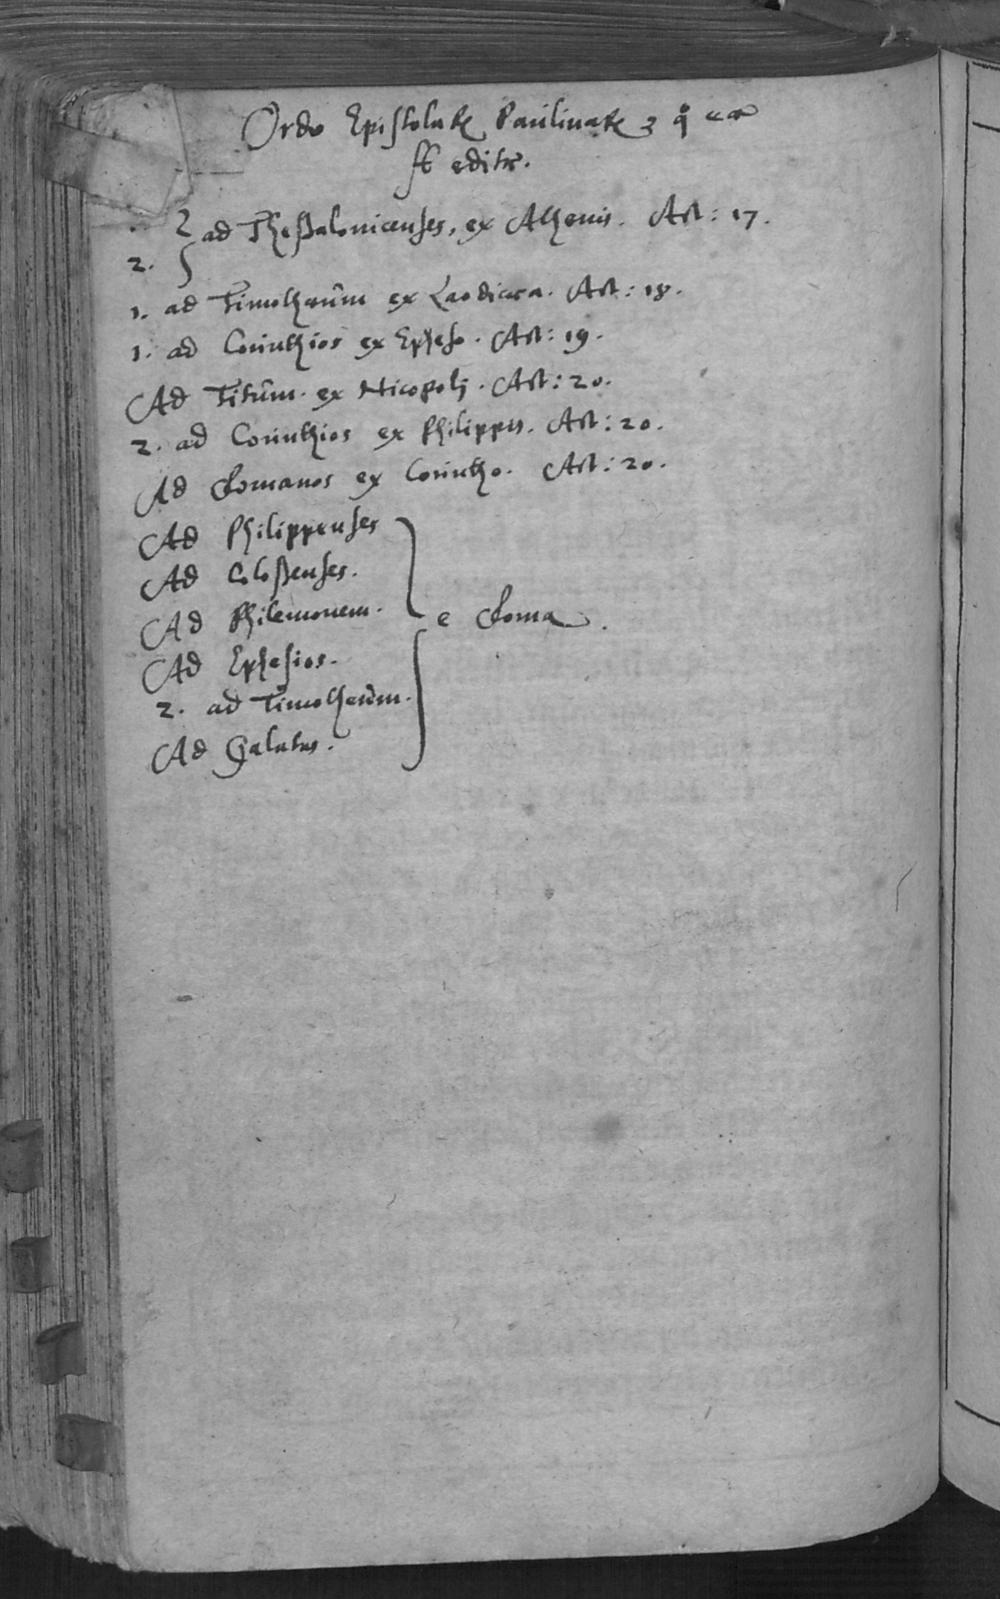 Ordo Epistolarꝝ Paulinarꝝ
editæ.
ad Thessalonicenses, ex Athenis. Act: 17.
2.
1. ad Timotheum ex Laodicæa. Act: 18.
1. ad Corinthios ex Epheso. Act: 19.
Ad Titum. ex Nicopolj. Act: 20.
2. ad Corinthios ex Philippis. Act: 20.
Ad Romanos ex Corintho. Act: 20.
Ad Philippenses
Ad Colossenses.
Ad Philemonem.
e Roma.
Ad Ephesios.
2. ad Timotheum.
Ad Galatas.